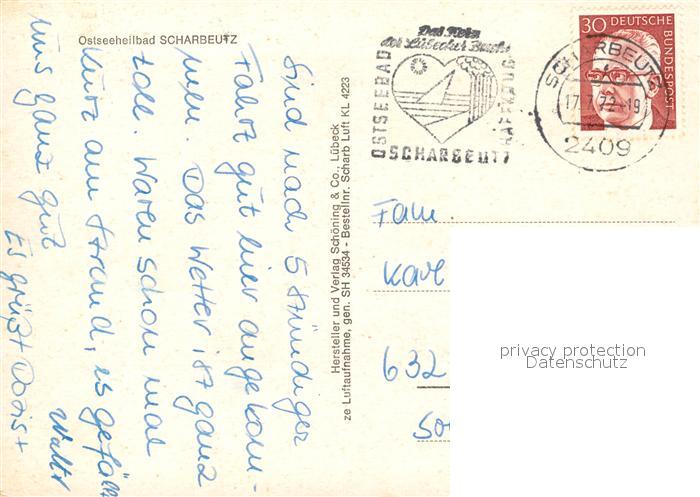 Ostseeheilbad SCHARBEUTZ
Sind nach 5 stündiger
Fahrt gut hier angekom-
men. Das Wetter ist ganz
toll. Waren schon mal
kurz am Strand, es gefällt
uns ganz gut
Es grüßt Doris +
Walter
Hersteller und Verlag Schöning & Co., Lübeck
ze Luftaufnahme, gen. SH 34534 - Bestellnr. Scharb Luft KL 4223
Das Herz
der Lübecker Bucht
OSTSEEBAD
SCHARBEUTZ
SCHARBEUTZ
17.7.72-19
2409
30 DEUTSCHE
BUNDESPOST
Fam.
Karl
632
privacy protection
Datenschutz